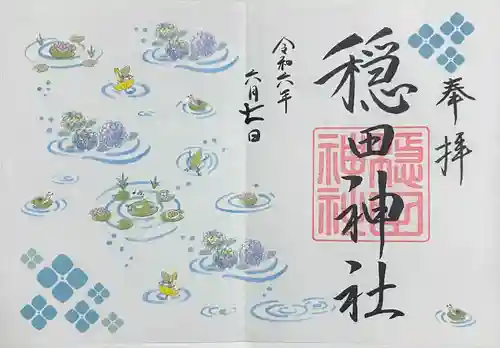 奉拝
穏田神社
穏田神社
令和六年
六月七日